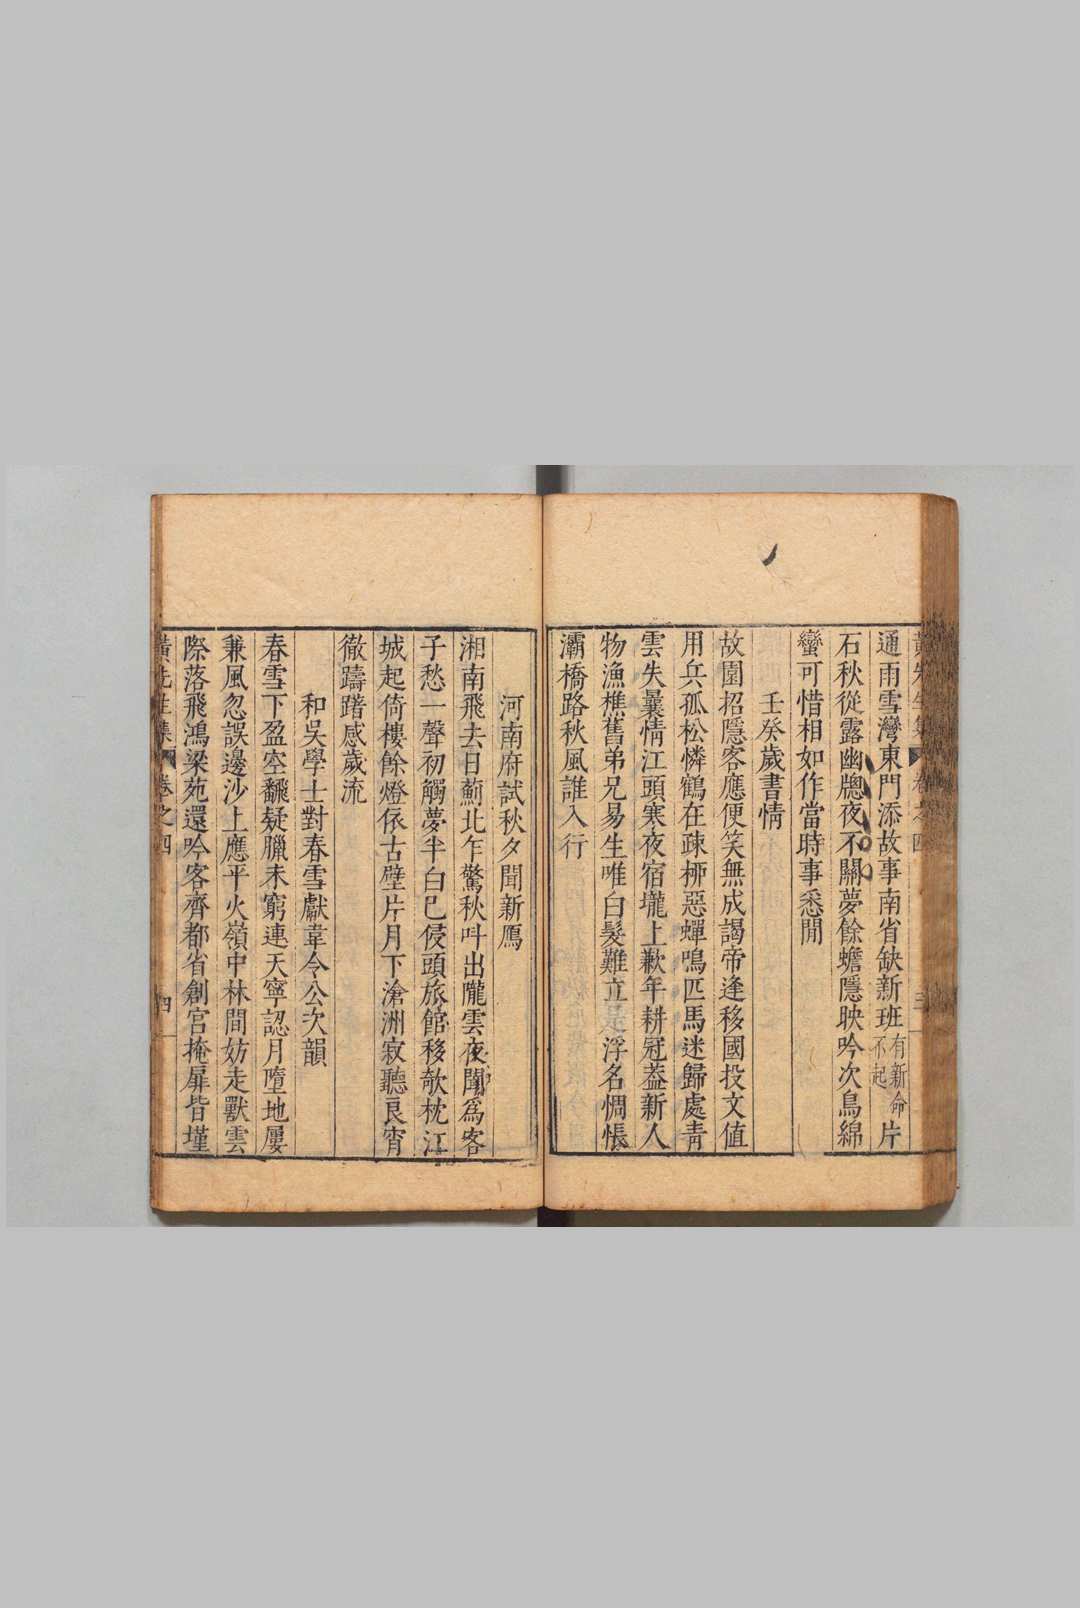 黃先生集 卷之四 三
通雨雪灣東門添故事南省缺新班有新命不起片
石秋從露幽牎夜不關夢餘蟾隱映吟次鳥綿
蠻可惜相如作當時事悉閒
壬癸歲書情
故園招隱客應便笑無成謁帝逢移國投文值
用兵孤松憐鶴在疎栁惡蟬鳴匹馬迷歸處青
雲失曩情江頭寒夜宿壠上歉年耕冠葢新人
物漁樵舊弟兄易生唯白髮難立是浮名惆悵
灞橋路秋風誰入行
河南府試秋夕聞新鴈
湘南飛去日薊北乍驚秋呌出隴雲夜聞爲客
子愁一聲初觸夢半白已侵頭旅館移欹枕江
城起倚樓餘燈依古壁片月下滄洲寂聽良宵
徹躊躇感歲流
和吳學士對春雪獻韋令公次韻
春雪下盈空翻疑臘未窮連天寧認月墮地屢
兼風忽誤邊沙上應平火嶺中林間妨走獸雲
際落飛鴻梁苑還吟客齊都省創宮掩扉皆墐
黃先生集 卷之四 四